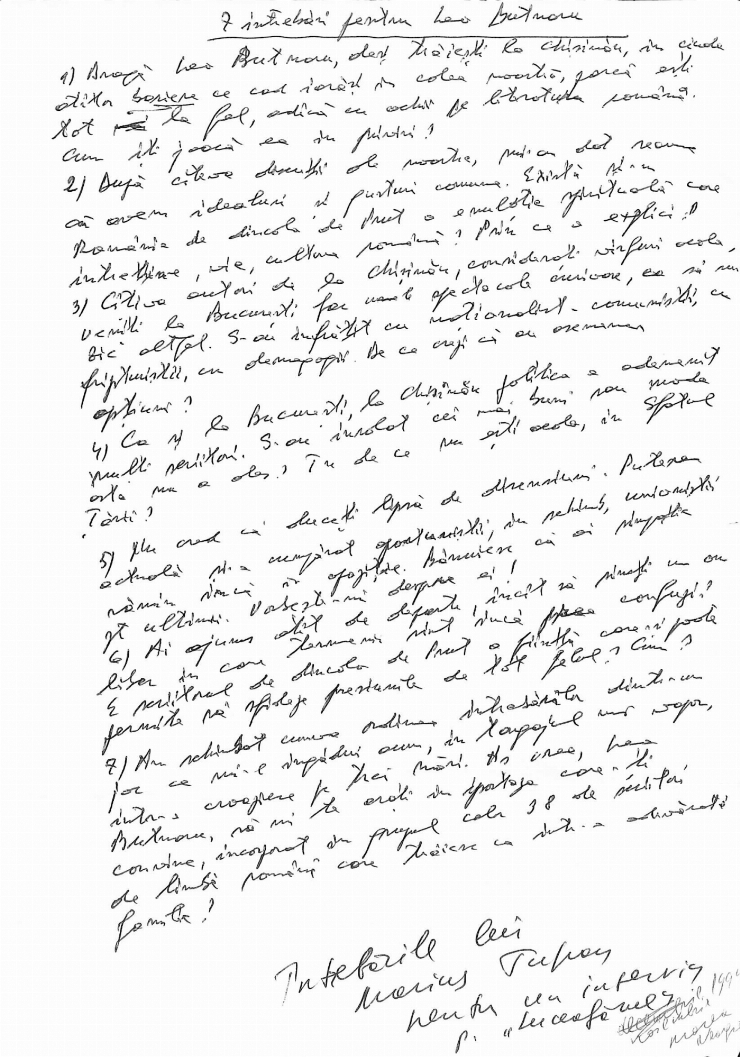 7 întrebări pentru Leo Butnaru
1) Dragă Leo Butnaru, deși trăiești la Chișinău, în ciuda
atîtor bariere ce cad iarăși în calea noastră, parcă ești
tot la fel, adică cu ochii pe literatura română.
Cum îți joacă ea în priviri?
2) După cîteva discuții ale noastre, mi-am dat seama
că avem idealuri și gusturi comune. Există și-n
România de dincolo de Prut o emulație spirituală care
întreține, vie, cultura română? Prin ce o explici?
3) Cîțiva autori de la Chișinău, considerați vîrfuri acolo,
veniți la București fac spectacole, ca să nu
zic altfel. S-au înfrățit cu național-comuniștii, cu
fripturiștii, cu demagogii. De ce crezi că au asemenea
opțiuni?
4) Ca și la București, la Chișinău politica a ademenit
mulți scriitori. S-au înrolat cei mai buni sau moda
asta nu a ales? Tu de ce nu ești acolo, în Sfatul
Țării?
5) Nu cred că duceți lipsă de disensiuni. Puterea
actuală și-a cumpărat oportuniștii, în schimb, unioniștii
rămîn încă în opoziție. Bănuiesc că ai simpatie
pt ultimii. Vorbește-mi despre ei!
6) Ai ajuns atît de departe, încît să simți un om
liber în care termenii sînt încă confuzi?
E scriitorul de dincolo de Prut o ființă care-și poate
permite să sfideze presiunile de tot felul? Cum?
7) Am schimbat cumva ordinea întrebărilor dintr-un
joc ce mi-l îngădui acum, în tangajul unui vapor,
într-o croazieră pe trei mări. Aș vrea, Leo
Butnaru, să mi te arăți în ipostaza care-ți
convine, încorporat în grupul celor 38 de scriitori
de limbă română care trăiesc ca într-o adevărată
familie?
Întrebările lui
Marius Tupan
pentru un interviu
p. "Luceafărul"